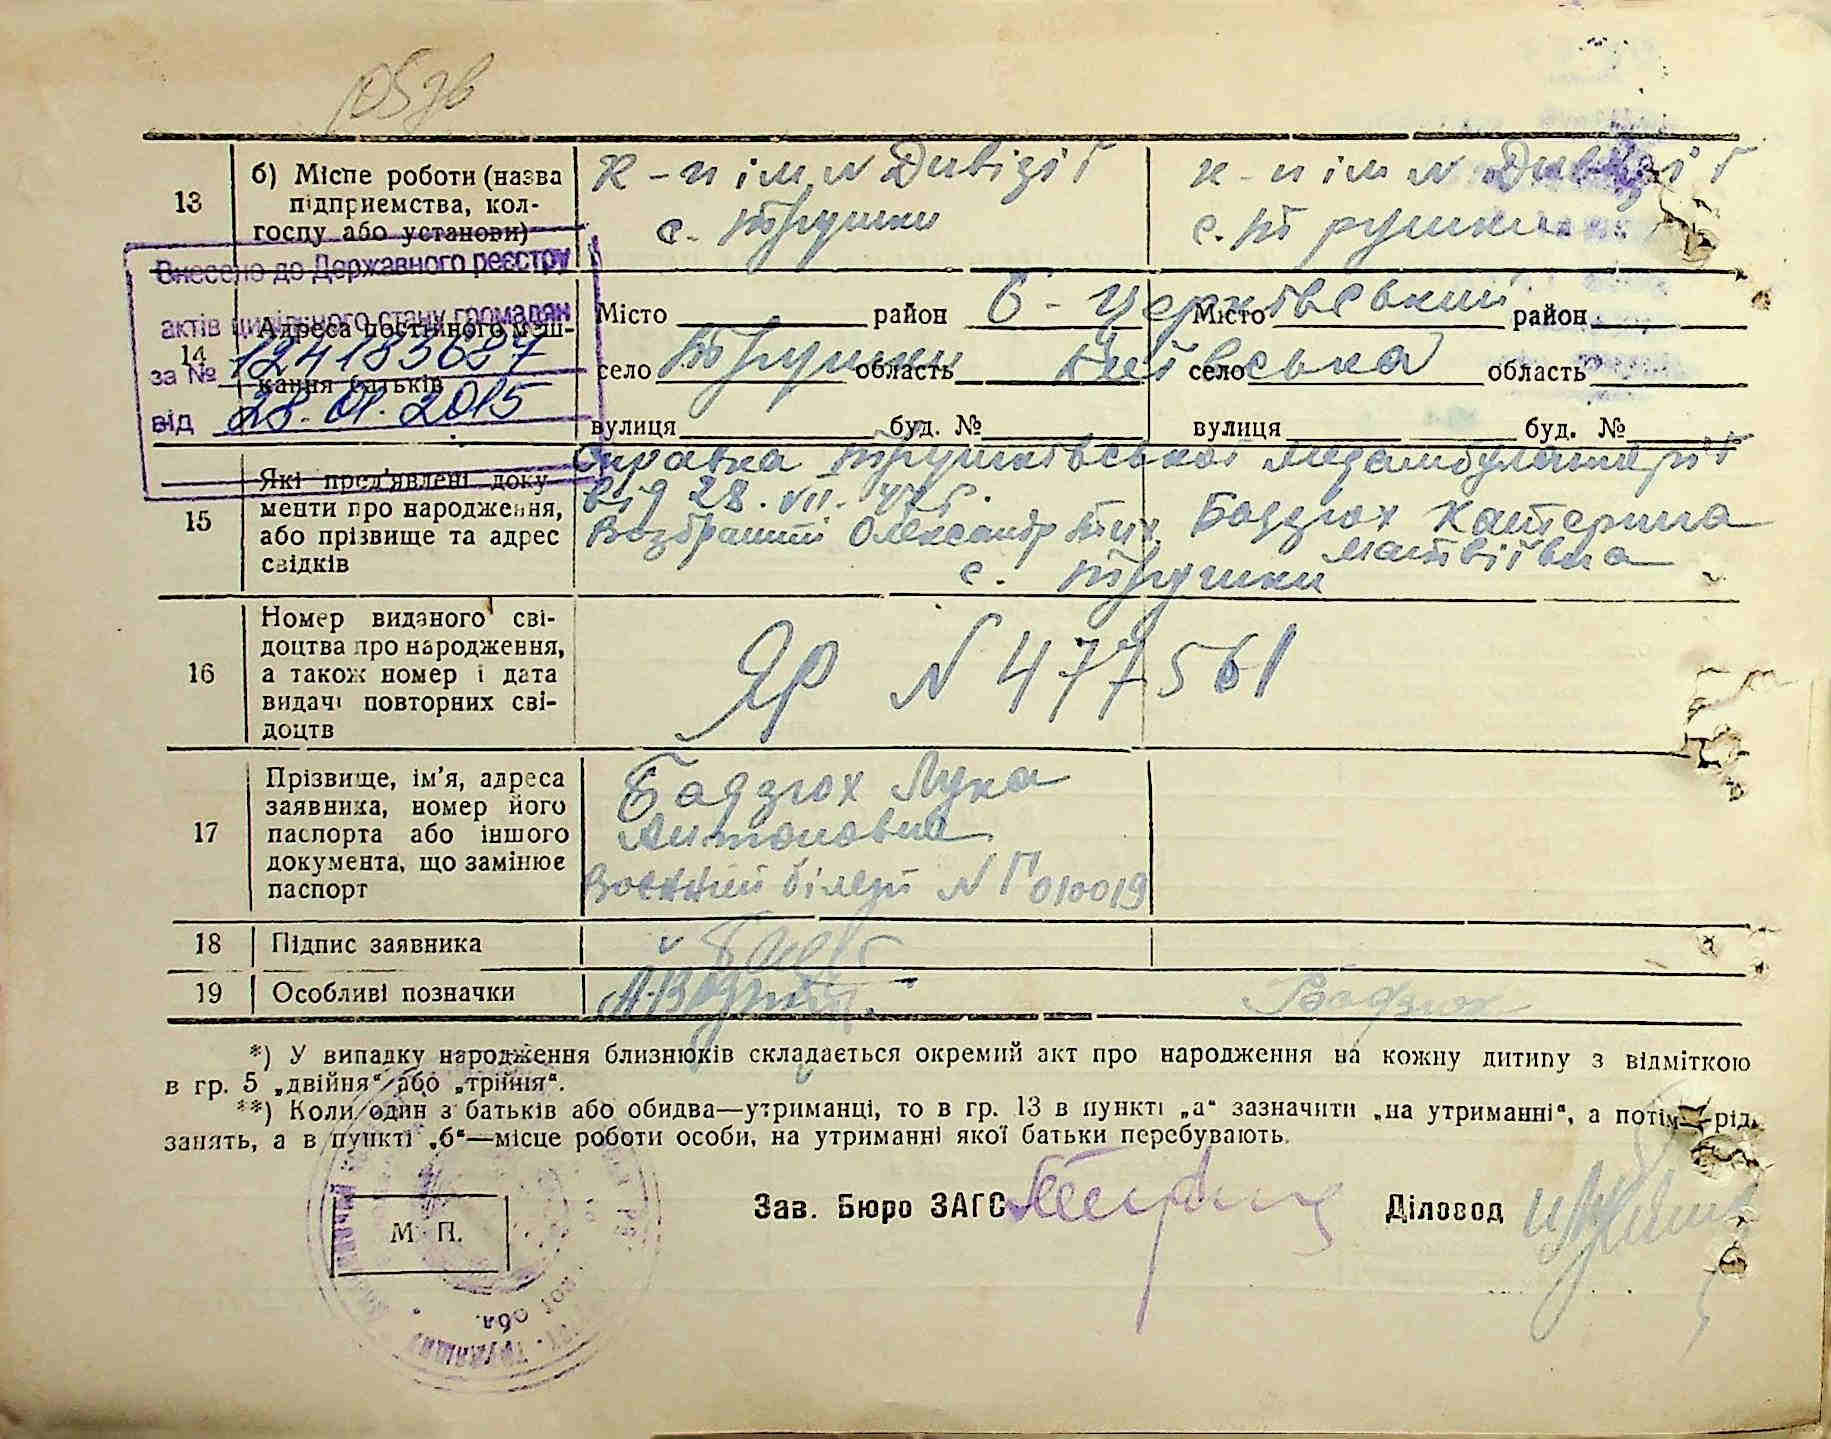 13
б) Місце роботи (назва
підприємства, кол-
госпу або установи)
к-п ім. N Дивізії
с. Трушки
к-п ім N Дивізії
с. Трушки
Внесено до Державного реєстру
актів цивільного стану громадян
за № 124183687
від 28.01.2015
14
Адреса постійного меш-
кання батьків
Місто район Б-Церківський Місто район
село Трушки область Київська село область
вулиця буд. № вулиця буд. №
15
Які пред'явлені доку-
менти про народження,
або прізвище та адрес
свідків
Справка Трушківської медамбулаторії
від 28.VII.
Олександр Бадзюх Катерина
Матвіївна
с. Трушки
16
Номер виданого сві-
доцтва про народження,
а також номер і дата
видачі повторних сві-
доцтв
ЯР N 477561
17
Прізвище, ім'я, адреса
заявника, номер його
паспорта або іншого
документа, що замінює
паспорт
Бадзюх Лука
Антоновна
Воєнний білет N Г010019
18
Підпис заявника
19
Особливі позначки
Бадзюх
*) У випадку народження близнюків складається окремий акт про народження на кожну дитину з відміткою
в гр. 5 „двійня“ або „трійня“.
**) Коли один з батьків або обидва—утриманці, то в гр. 13 в пункті „а“ зазначити „на утриманні“, а потім рід
занять, а в пункті „б“—місце роботи особи, на утриманні якої батьки перебувають.
М. П.
Зав. Бюро ЗАГС
Діловод